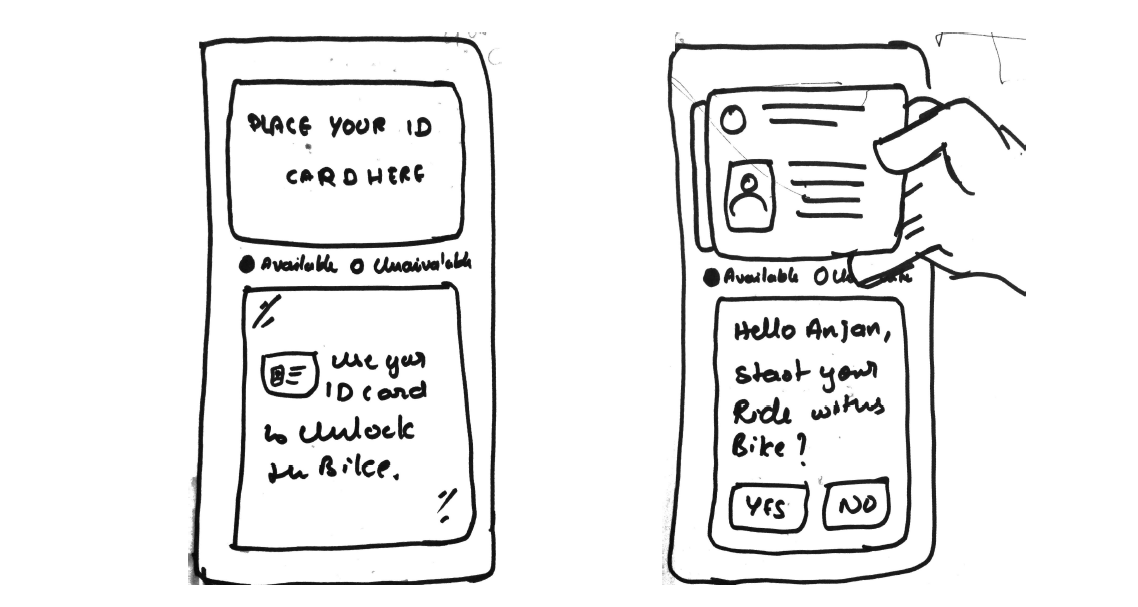 PLACE YOUR ID
CARD HERE
Available Unaivalable
Use your
ID card
to Unlock
the Bike.
Available
Hello Anjan,
start your
Ride with this
Bike?
YES NO